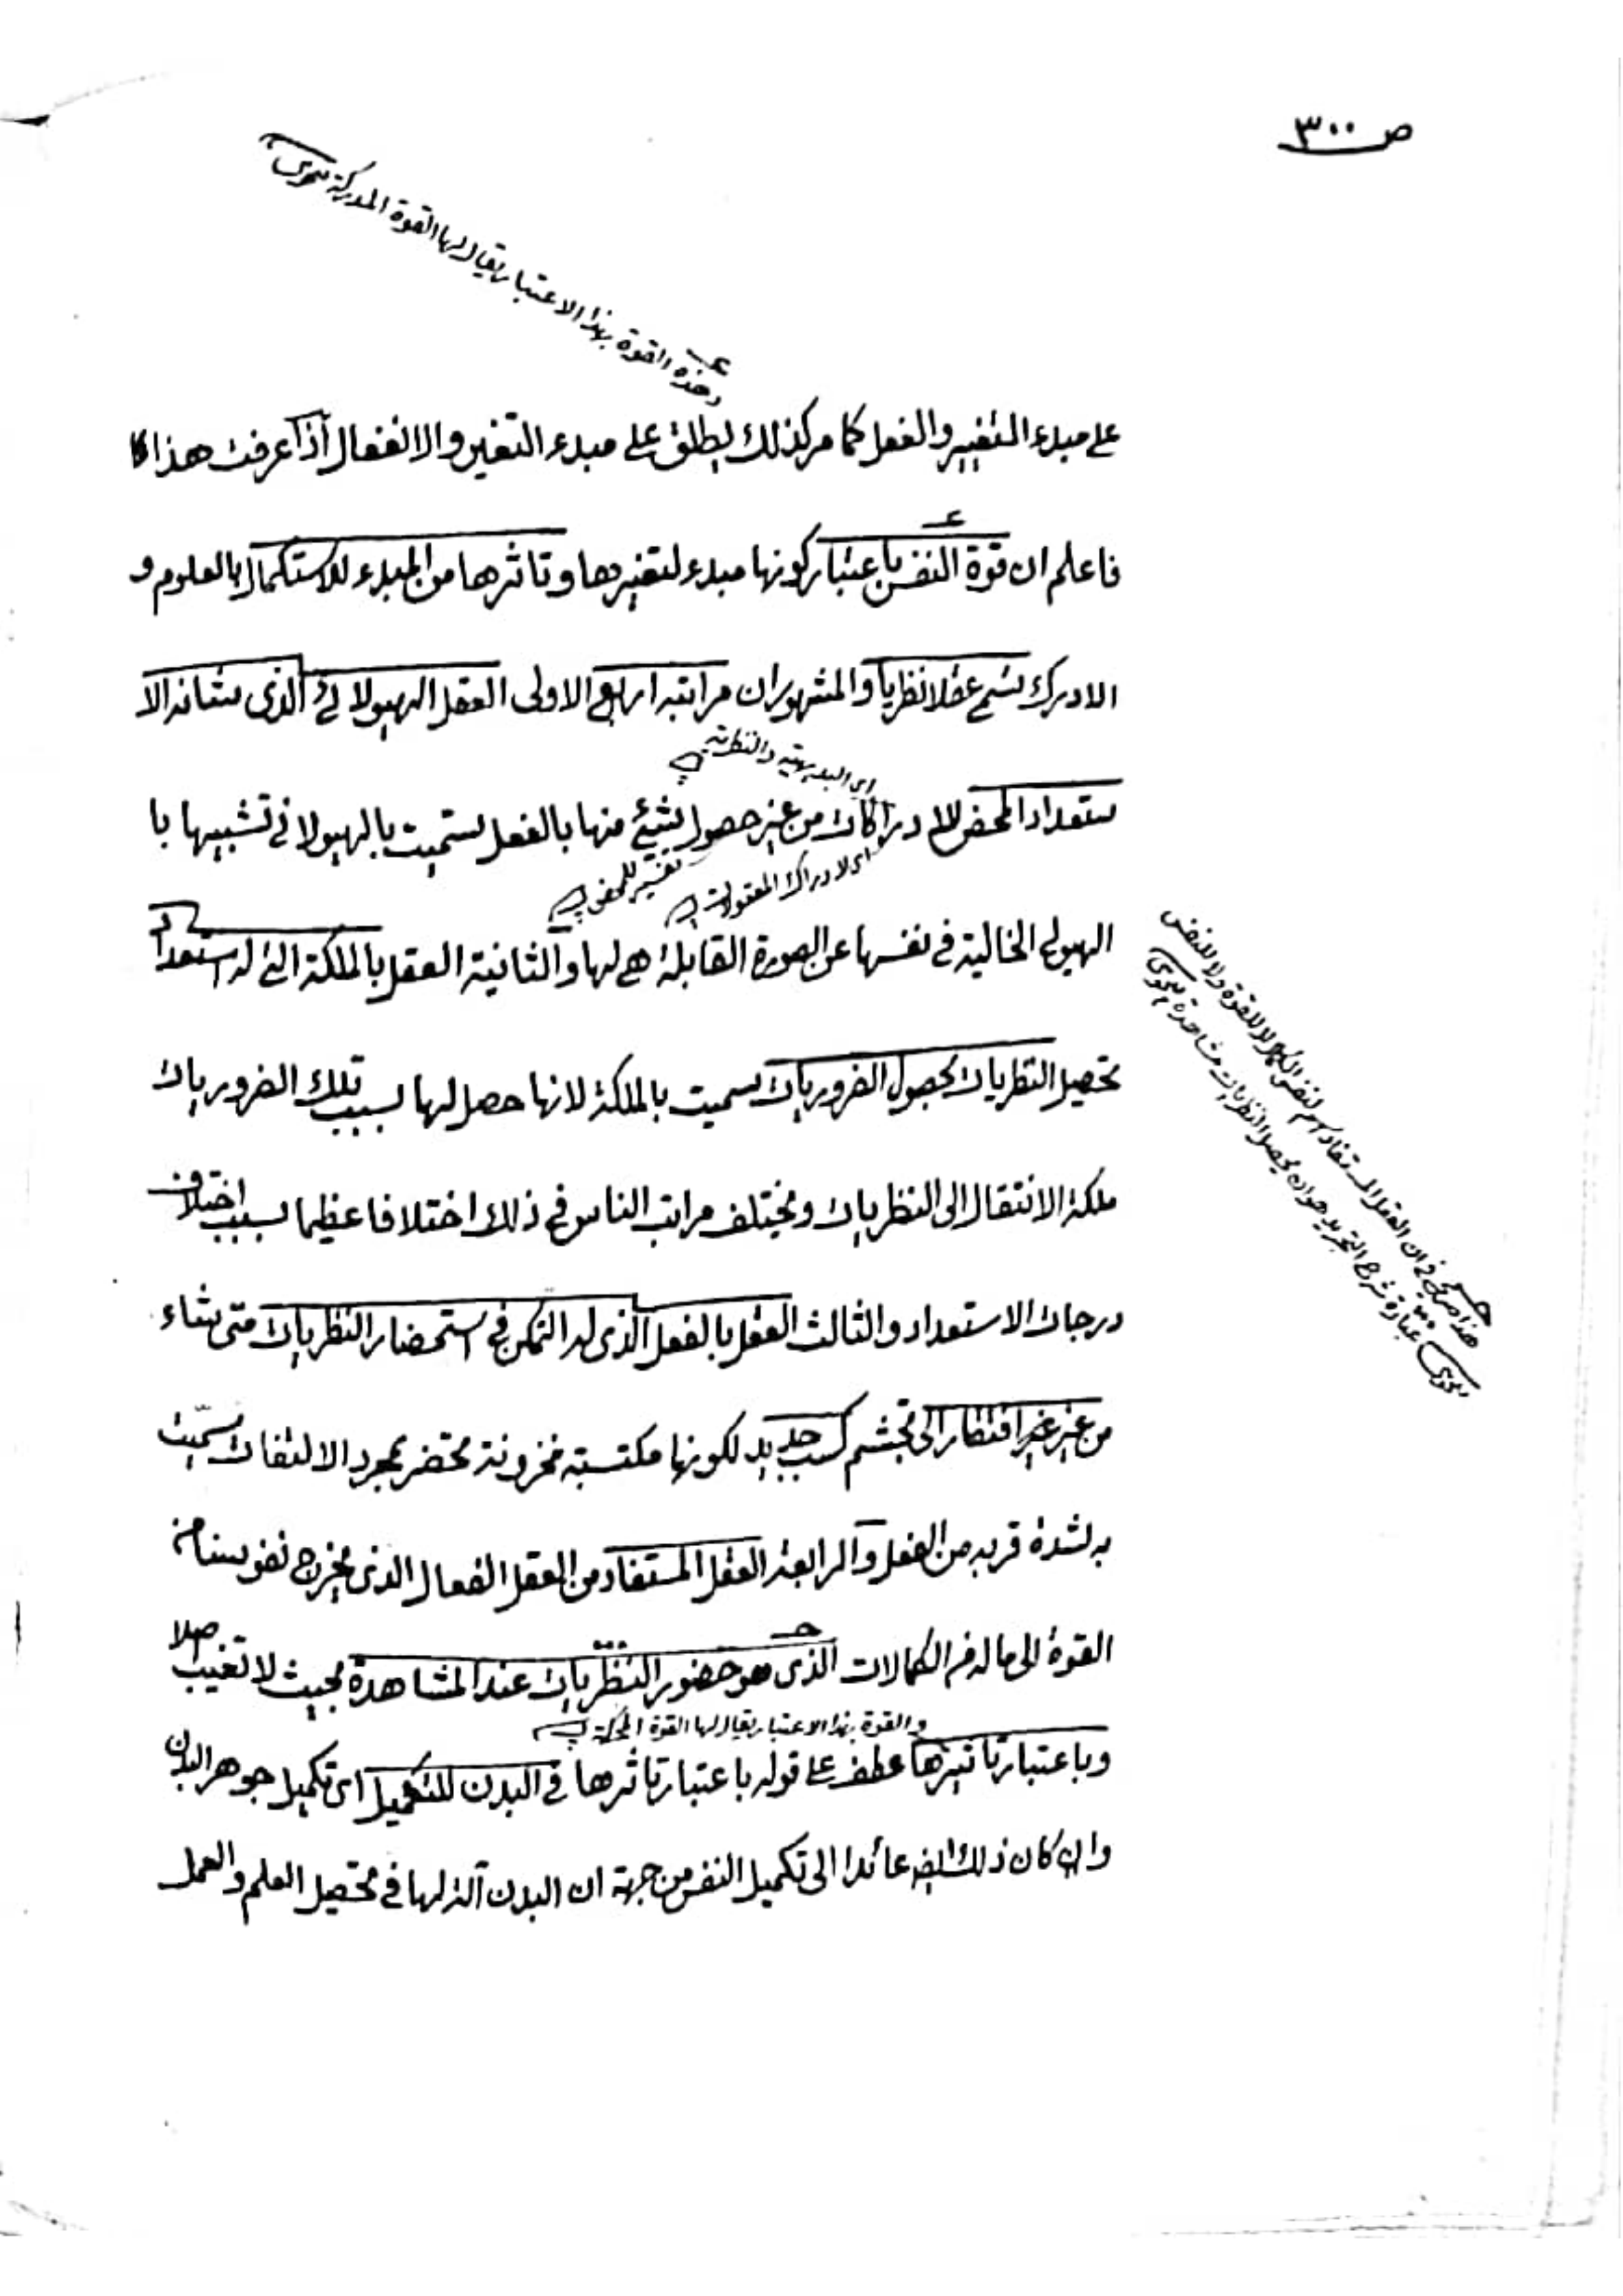 ص ٣٠٠
وهذه القوة بهذا الاعتبار يقال لها القوة المدركة
على مبدء التغيير والفعل كما مر كذلك يطلق على مبدء التغير والانفعال اذا عرفت هذا
فاعلم ان قوة النفس باعتبار كونها مبدء لتغيرها وتاثرها من المبدء للاستكمال بالعلوم و
الادرك تسمى عقلا نظريا والمشهور ان مراتبه اربع الاولى العقل الهيولاني الذى شانه الا
اى البديهية والنظرية
ستعداد المحض للادراكات من غير حصول شئ منها بالفعل سميت بالهيولانى تشبيها با
اى لادراك المعقولات
تفسير للمحض
الهيولى الخالية فى نفسها عن الصورة القابلة هى لها والثانية العقل بالملكة التى له استعداد
تحصيل النظريات بحصول الضروريات سميت بالملكة لانها حصل لها بسبب تلك الضروريات
ملكة الانتقال الى النظريات ويختلف مراتب الناس فى ذلك اختلافا عظيما بسبب اختلاف
درجات الاستعداد والثالث العقل بالفعل الذى له التمكن فى استحضار النظريات متى شاء
من غير افتقار الى تجشم كسب جديد لكونها مكتسبة مخزونة تحضر بمجرد الالتفات سميت
به لشدة قربه من الفعل والرابعة العقل المستفاد من العقل الفعال الذى يخرج نفوسنا من
القوة الى ما له من الكمالات الذى هو حضور النظريات عند المشاهدة بحيث لا تغيب اصلا
والقوة بهذا الاعتبار يقال لها القوة المحركة
وباعتبار تاثيرها عطف على قوله باعتبار تاثرها فى البدن للتكميل اى تكميل جوهر البدن
وان كان ذلك ايضا عائدا الى تكميل النفس من جهة ان البدن آلة لها فى تحصيل العلم والعمل
هذا صريح فى ان العقل المستفاد اسم لنفس الكمال لا للقوة ولا للنفس
عبارة شرح التجريد هو ان يحصل النظريات مشاهدة